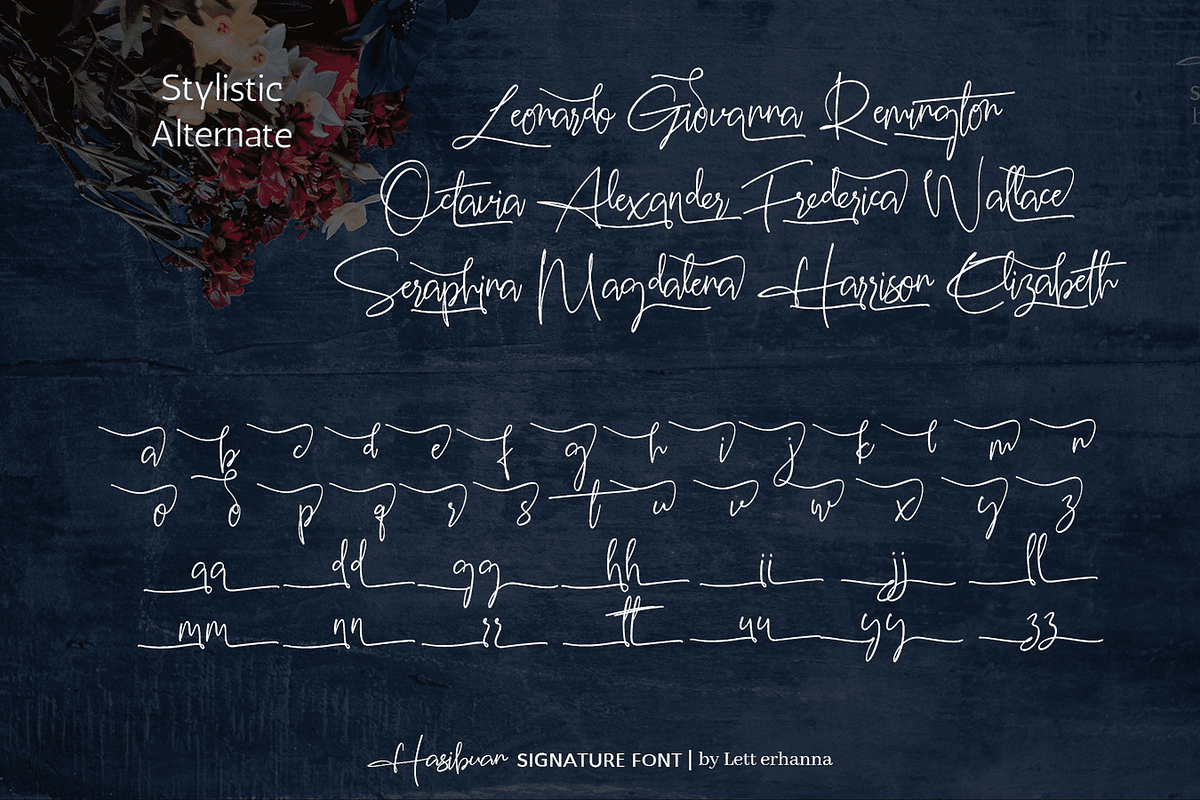 Stylistic
Alternate
Leonardo Giovanna Remington
Octavia Alexander Frederica Wallace
Seraphina Magdalena Harrison Elizabeth
a b c d e f g h i j k l m n
o o p q r s t u v w x y z
aa dd gg hh ii jj ll
mm nn rr tt uu yy zz
Hasibuan SIGNATURE FONT | by Lett erhanna